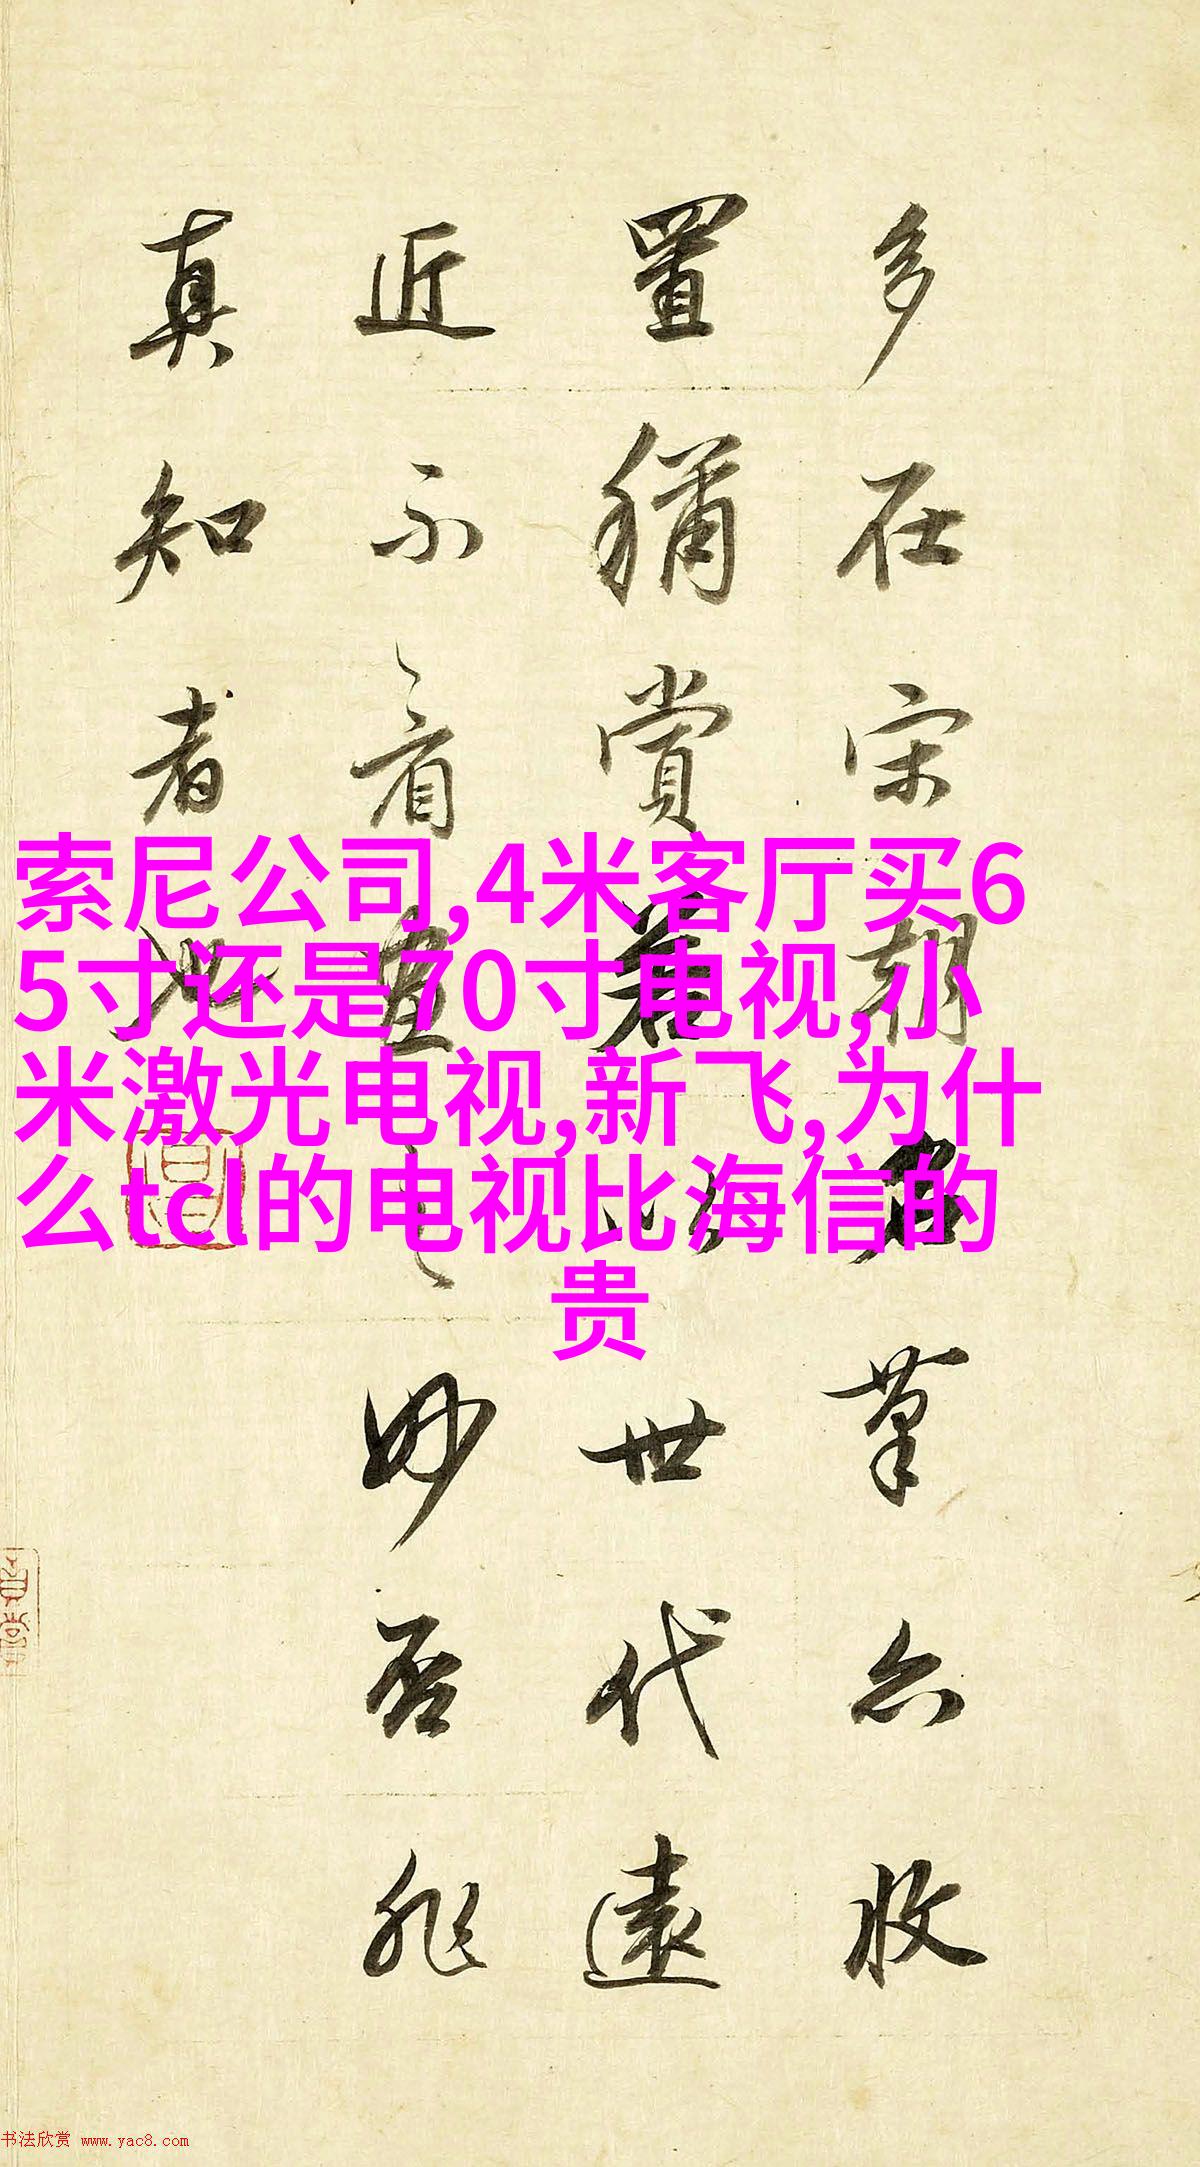 多在宋朝名筆亦收
置稱賞蓋以世代遠
近不看畫之妙否非
真知者也
索尼公司,4米客厅买6
5寸还是70寸电视,小
米激光电视,新飞,为什
么tcl的电视比海信的
贵
书法欣赏 www.yac8.com